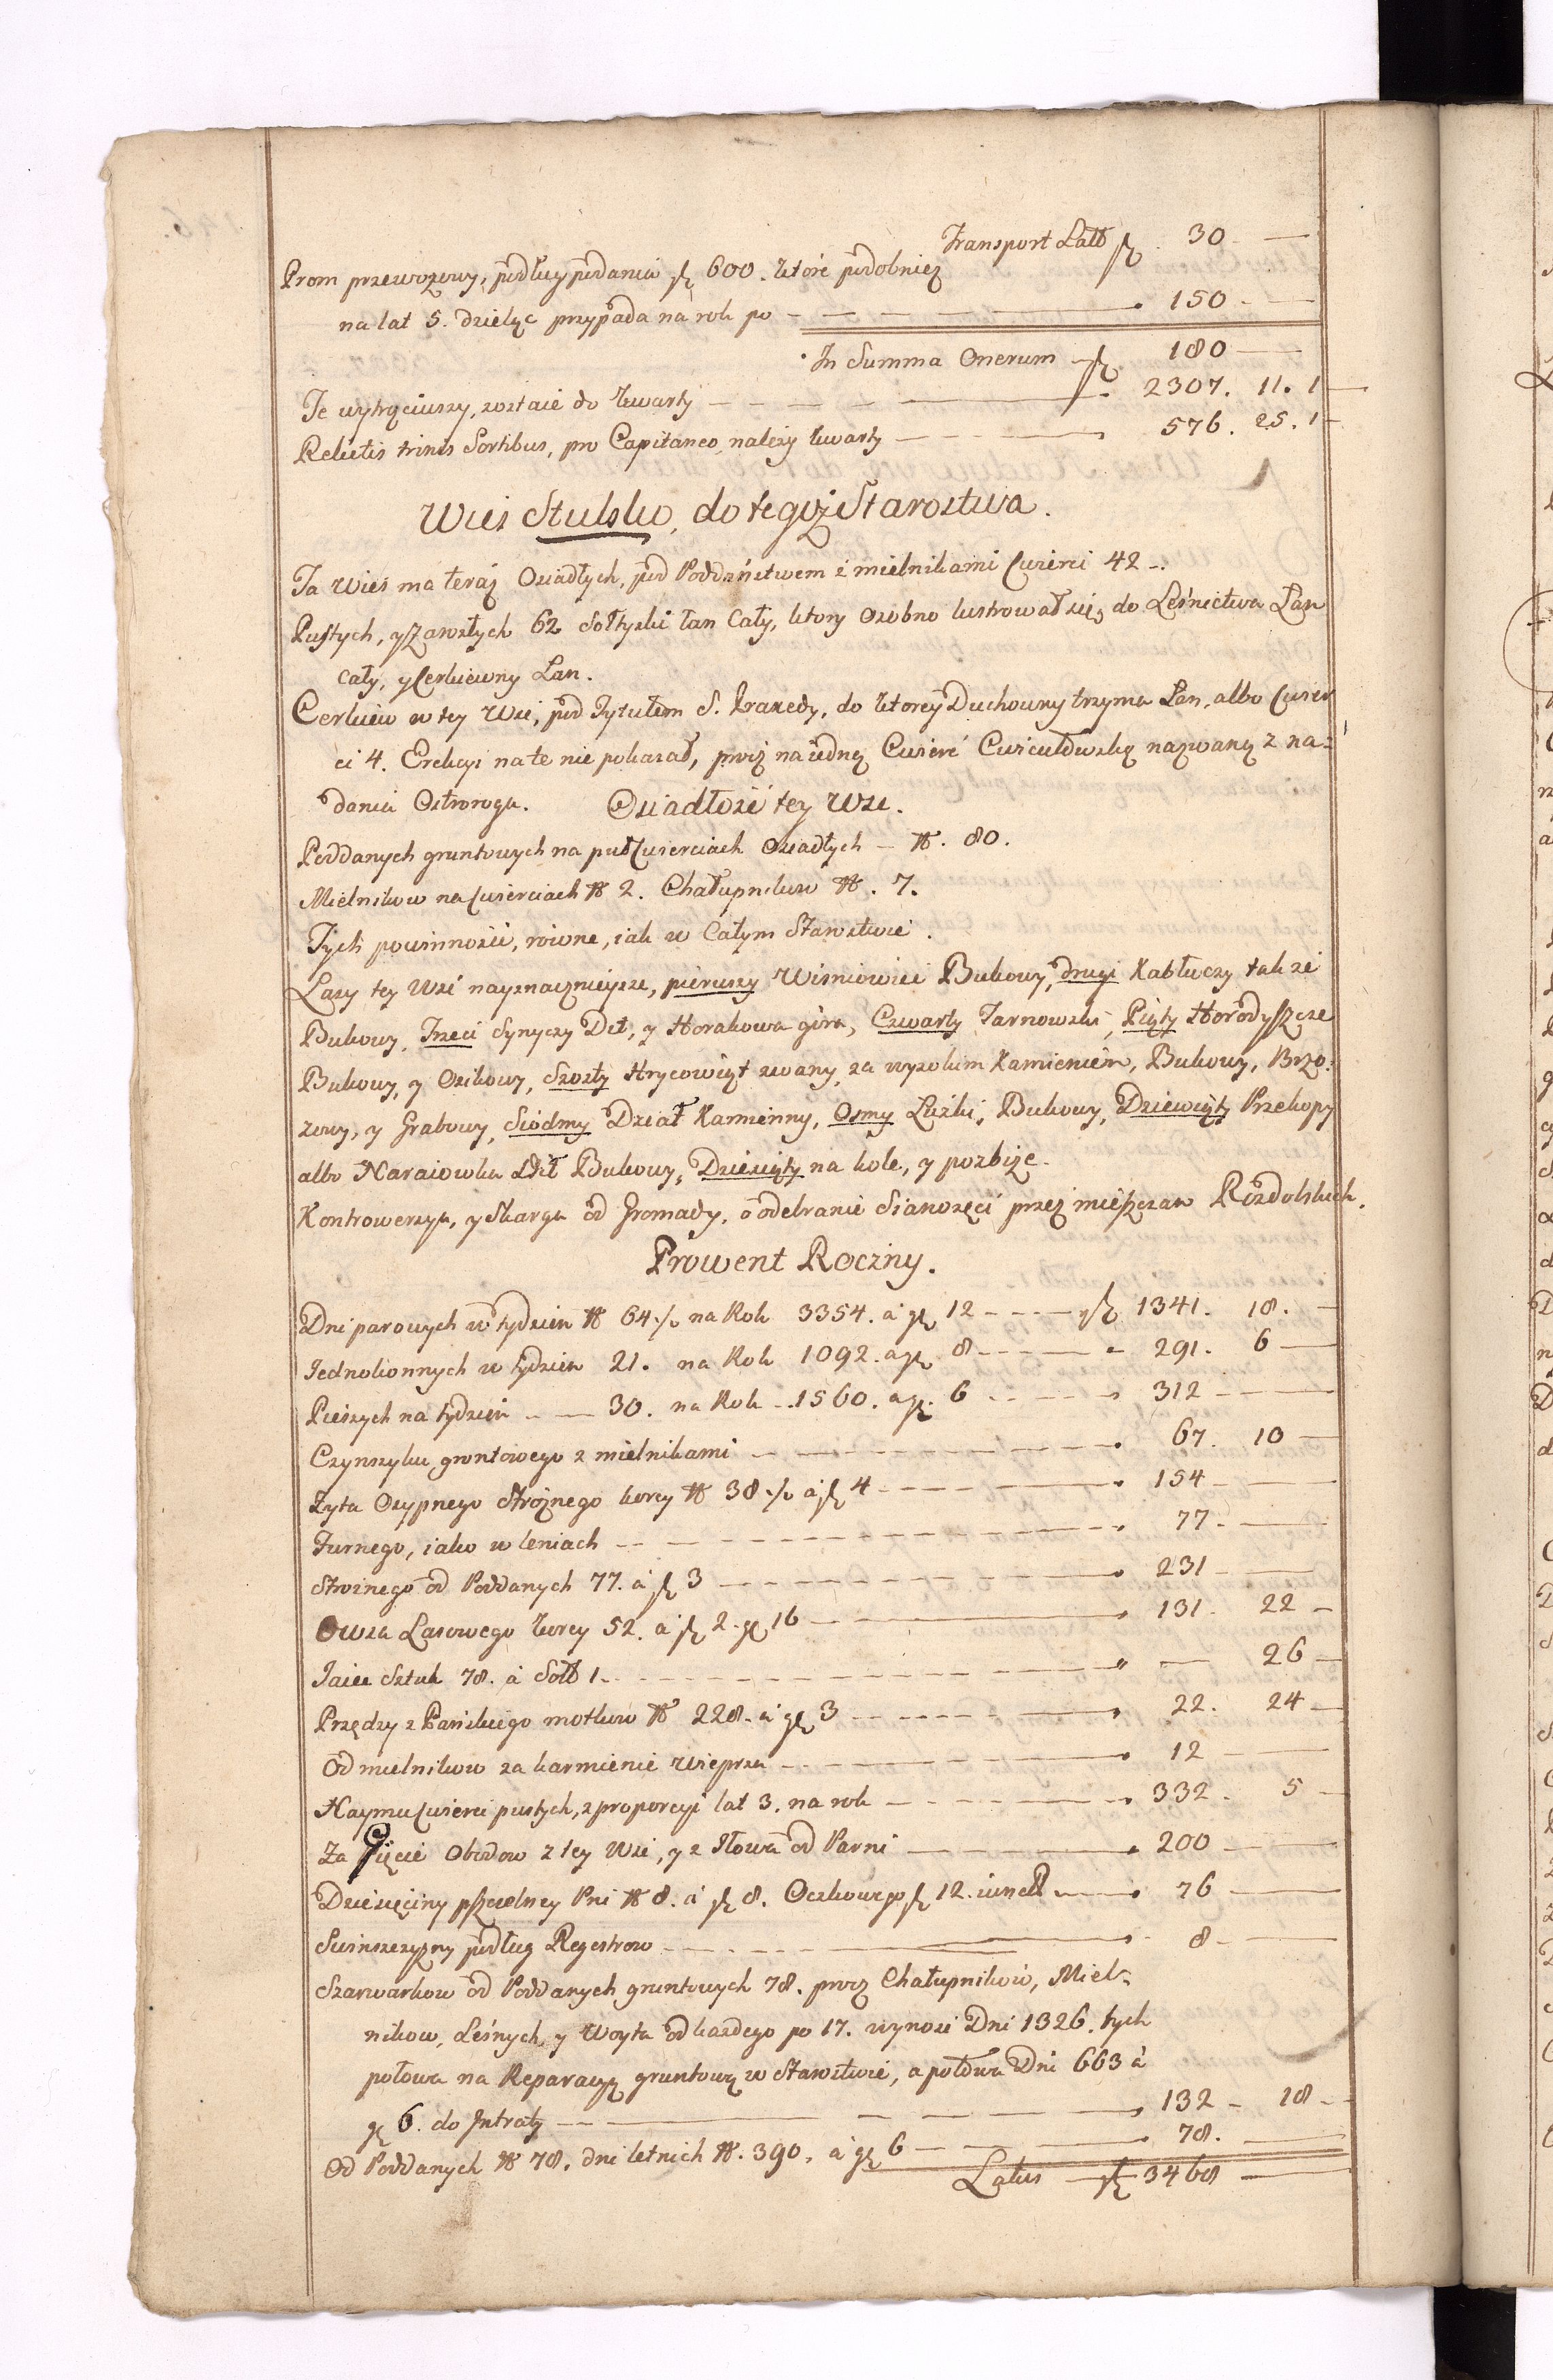 Transport Latθ zł. 30 —
Prom przewozowy, podług podania zł 600. które podobniez
na lat 5. dzieląc przypada na rok po — — — 150 —
In Summa Onerum — zł. 180 —
Te wytrąciwszy, zostaie do kwarty — — — 2307. 11. 1
Relictis trinis Sortibus, pro Capitaneo, należy kwarty — — — 576. 25. 1
Wieś Stulsko, do tegoż Starostwa.
Ta Wieś ma teraz Osiadłych, pod Poddaństwem z mielnikami Cwierci 42 —.
Pustych, y Zarosłych 62 Sołtyski łan Cały, ktory Osobno lustrował się, do Leśnictwa Łan
Cały, y Cerkiewny Łan.
Cerkiew w tey Wsi, pod Tytułem S. Praxedy, do ktorey Duchowny trzyma Łan, albo Cwier
ci 4. Erekcyi na te nie pokazał, procz na iedną Cwierć Cwiculowską nazwaną z na=
dania Ostroroga. Osiadłość tey Wsi.
Poddanych gruntowych na puł Cwierciach Osiadłych — №. 80.
Mielnikow na Cwierciach № 2. Chałupnikow №. 7.
Tych powinności, rowne, iak w Całym Starostwie.
Lasy tey Wsi nayznacznieysze, pierwszy Wisniowiec Bukowy, drugi Kabłuczy takze
Bukowy, Trzeci Synyczy Dił, y Horakowa góra, Czwarty Tarnowski, Piąty Horodyszcze
Bukowy, y Osikowy, Szosty Hrycowiąt zwany, za wysokim Kamieniem, Bukowy, Brzo=
zowy, y Grabowy, Siodmy Dział Kamienny, Osmy Lizki, Bukowy, Dziewiąty Przekopy
albo Naraiowka Dił Bukowy, Dziesiąty na kole, y pozbize.
Kontrowersya, y Skarga od Gromady, o odebranie Sianożęci przez mieszczan Rozdolskich.
Prowent Roczny.
Dni parowych w tydzien № 64 ½ na Rok 3354. a gr 12 — — — zł 1341. 18. —
Jednokonnych w tydzien 21. na Rok 1092. a gr. 8 — — — 291. 6 —
Pieszych na tydzień — — 30. na Rok — 1560. a gr. 6 — — — 312 —
Czynszyku gruntowego z mielnikami — — — 67. 10 —
Zyta Osypnego Stróżnego korcy № 38 ½ a zł 4 — — — 154 —
Turnego, iako w leniach — — — 77 —
Strożnego od Poddanych 77. a zł 3 — — — 231 —
Owsa Lasowego korcy 52. a zł 2. gr 16 — — — 131. 22 —
Jaiec Sztuk 78. a Soł 1 — — — 26 —
Przędzy z Pańskiego motkow № 228. a gr 3 — — — 22. 24 —
Od mielnikow za karmienie Wieprza — — — 12 —
Naymu Cwierci pustych, z proporcyi lat 3. na rok — — — 332. 5 —
Za Pięcie Obodow z tey Wsi, y z Iłowa od Parni — — — 200 —
Dziesięciny pszczelney Pni № 8. a zł 8. Oczkowego zł 12. — — — 76 —
Swinszczyzny podług Regestrow — — — 8 —
Szarwarkow od Poddanych gruntowych 78. procz Chałupnikow, Miel=
nikow, Leśnych, y Woyta od każdego po 17. wynosi Dni 1326. tych
połowa na Reparacyą gruntową w Starostwie, a połowa Dni 663 a
gr 6. do Intraty — — — 132 — 18 —
Od Poddanych № 78. dni letnich №. 390. a gr 6 — — — 78. —
Latus — zł 3468 —